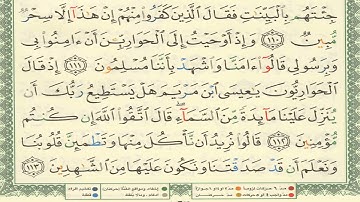 جِئْتَهُم بِٱلْبَيِّنَٰتِ فَقَالَ ٱلَّذِينَ كَفَرُوا۟ مِنْهُمْ إِنْ هَٰذَآ إِلَّا سِحْرٌ
مُّبِينٌ ١١٠ وَإِذْ أَوْحَيْتُ إِلَى ٱلْحَوَارِيِّـۧنَ أَنْ ءَامِنُوا۟ بِى
وَبِرَسُولِى قَالُوٓا۟ ءَامَنَّا وَٱشْهَدْ بِأَنَّنَا مُسْلِمُونَ ١١١ إِذْ قَالَ
ٱلْحَوَارِيُّونَ يَٰعِيسَى ٱبْنَ مَرْيَمَ هَلْ يَسْتَطِيعُ رَبُّكَ أَن
يُنَزِّلَ عَلَيْنَا مَآئِدَةً مِّنَ ٱلسَّمَآءِ ۖ قَالَ ٱتَّقُوا۟ ٱللَّهَ إِن كُنتُم
مُّؤْمِنِينَ ١١٢ قَالُوا۟ نُرِيدُ أَن نَّأْكُلَ مِنْهَا وَتَطْمَئِنَّ قُلُوبُنَا
وَنَعْلَمَ أَن قَدْ صَدَقْتَنَا وَنَكُونَ عَلَيْهَا مِنَ ٱلشَّٰهِدِينَ ١١٣